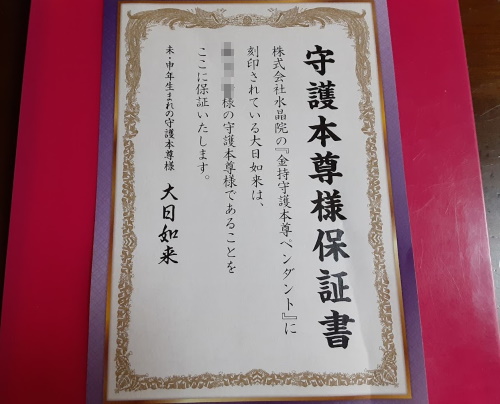 守護本尊様保証書
株式会社水晶院の『金持守護本尊ペンダント』に
刻印されている大日如来は、
様の守護本尊様であることを
ここに保証いたします。
未・申年生まれの守護本尊様 大日如来